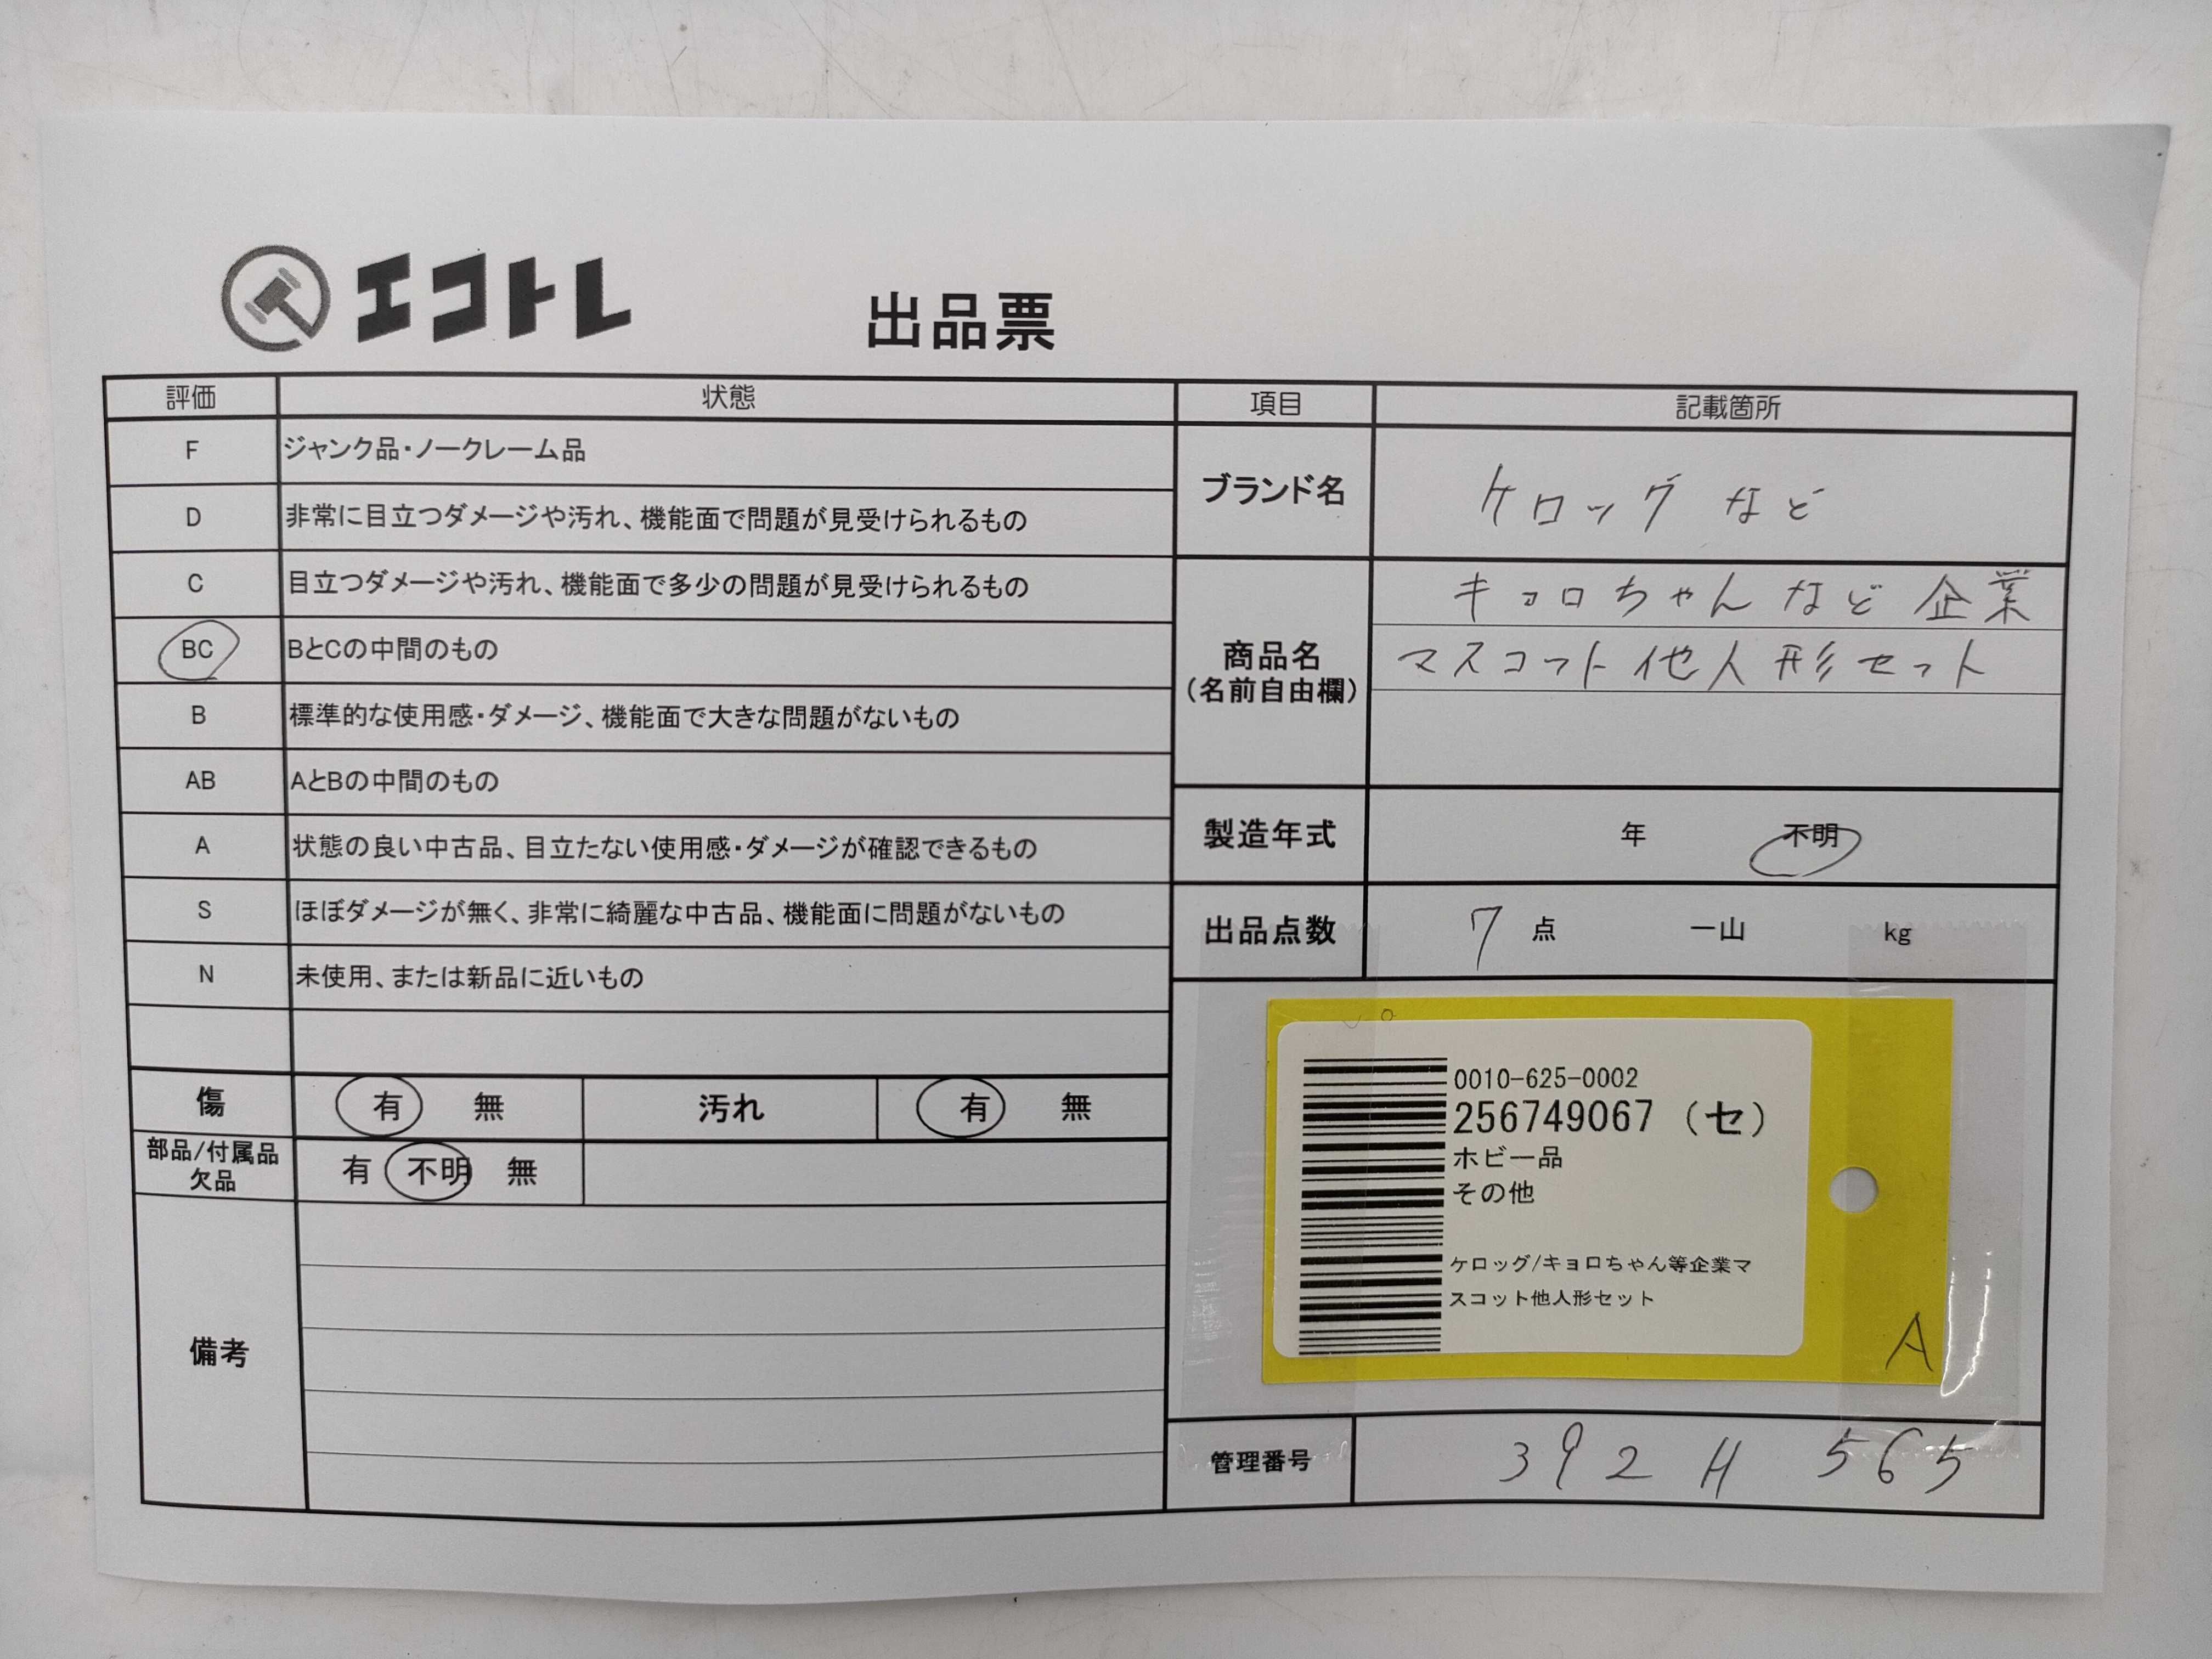 エコトレ
出品票
評価 状態
F ジャンク品・ノークレーム品
D 非常に目立つダメージや汚れ、機能面で問題が見受けられるもの
C 目立つダメージや汚れ、機能面で多少の問題が見受けられるもの
BC BとCの中間のもの
B 標準的な使用感・ダメージ、機能面で大きな問題がないもの
AB AとBの中間のもの
A 状態の良い中古品、目立たない使用感・ダメージが確認できるもの
S ほぼダメージが無く、非常に綺麗な中古品、機能面に問題がないもの
N 未使用、または新品に近いもの
傷 有 無 汚れ 有 無
部品/付属品
欠品
有 不明 無
備考
項目 記載箇所
ブランド名 ケロッグ など
商品名
(名前自由欄)
キョロちゃん など 企業
マスコット他人形セット
製造年式 年 不明
出品点数 7 点 一山 kg
0010-625-0002
256749067 (セ)
ホビー品
その他
ケロッグ/キョロちゃん等企業マ
スコット他人形セット
A
管理番号 392 H 565